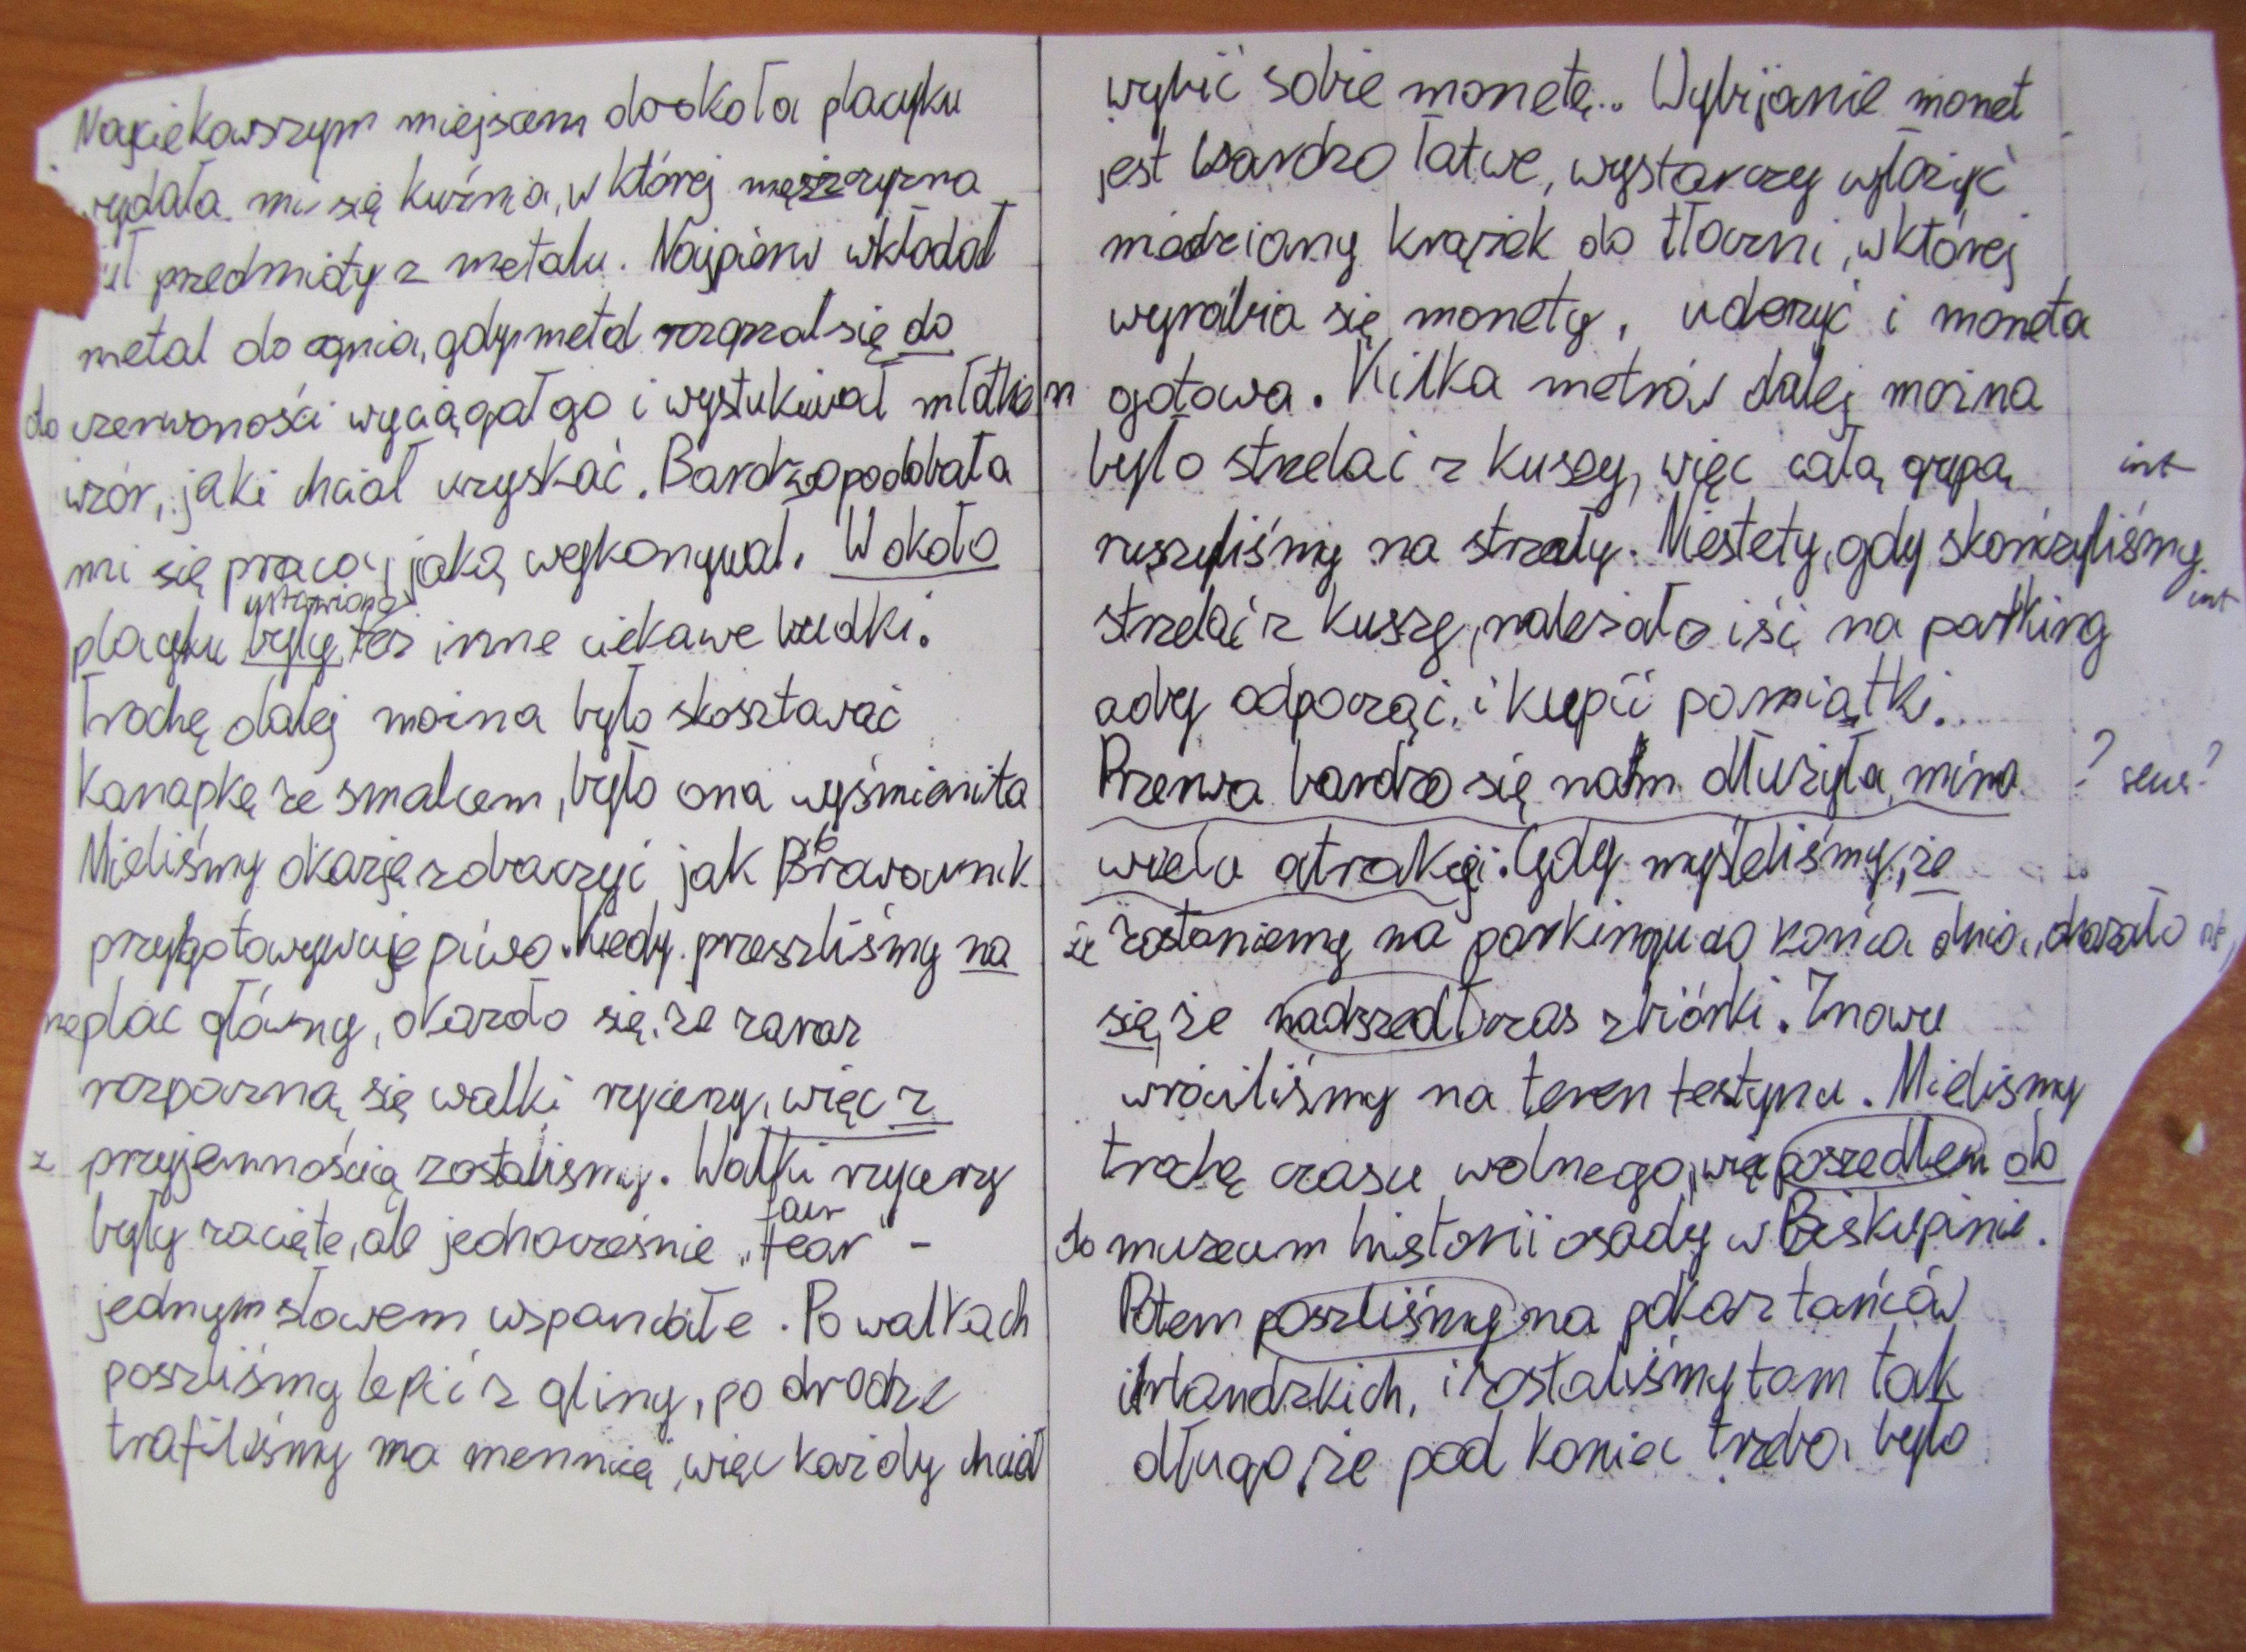 Najciekawszym miejscem dookoła placyku
wydała mi się kuźnia, w której mężczyzna
przedmioty z metalu. Najpierw wkładał
metal do ognia, gdy metal rozgrzał się do
do czerwoności wyciągał go i wystukiwał młotkiem
wzór, jaki chciał uzyskać. Bardzo podobała
mi się praca, jaką wykonywał. W około
ustawione
placyku były też inne ciekawe budki.
Trochę dalej można było skosztować
kanapkę ze smalcem, było ona wyśmienita
Mieliśmy okazję zobaczyć jak Browarnik
przygotowywuje piwo. Kiedy przeszliśmy na
na plac główny, okazało się, że zaraz
rozpoczną się walki rycerzy, więc z
z przyjemnością zostaliśmy. Walki rycerzy
fair
były zacięte, ale jednocześnie „fear" -
jednym słowem wspaniałe. Po walkach
poszliśmy lepić z gliny, po drodze
trafiliśmy na mennicę, więc każdy chciał
wybić sobie monetę.. Wybijanie monet
jest bardzo łatwe, wystarczy włożyć
miedziany krążek do tłoczni, w której
wyrabia się monety, uderzyć i moneta
gotowa. Kilka metrów dalej można
było strzelać z kuszy, więc całą grupą int
ruszyliśmy na strzały. Niestety, gdy skończyliśmy
strzelać z kuszy, należało iść na parking int
aby odpocząć, i kupić pamiątki.
Przerwa bardzo się nam dłużyła, mimo ? sens?
wielu atrakcji. Gdy myśleliśmy, że
że zostaniemy na parkingu do końca dnia, okazało
się, że nadszedł czas zbiórki. Znowu
wróciliśmy na teren festynu. Mieliśmy
trochę czasu wolnego, więc poszedłem do
do muzeum historii osady w Biskupinie.
Potem poszliśmy na pokaz tańców
irlandzkich, i zostaliśmy tam tak
długo, że pod koniec trzeba było